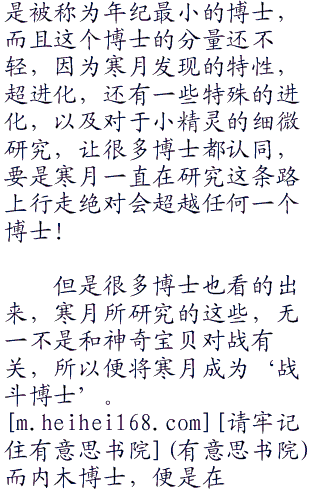 是被称为年纪最小的博士，
而且这个博士的分量还不
轻，因为寒月发现的特性，
超进化，还有一些特殊的进
化，以及对于小精灵的细微
研究，让很多博士都认同，
要是寒月一直在研究这条路
上行走绝对会超越任何一个
博士！
但是很多博士也看的出
来，寒月所研究的这些，无
一不是和神奇宝贝对战有
关，所以便将寒月成为‘战
斗博士’。
[m.heihei168.com][请牢记
住有意思书院](有意思书院)
而内木博士，便是在